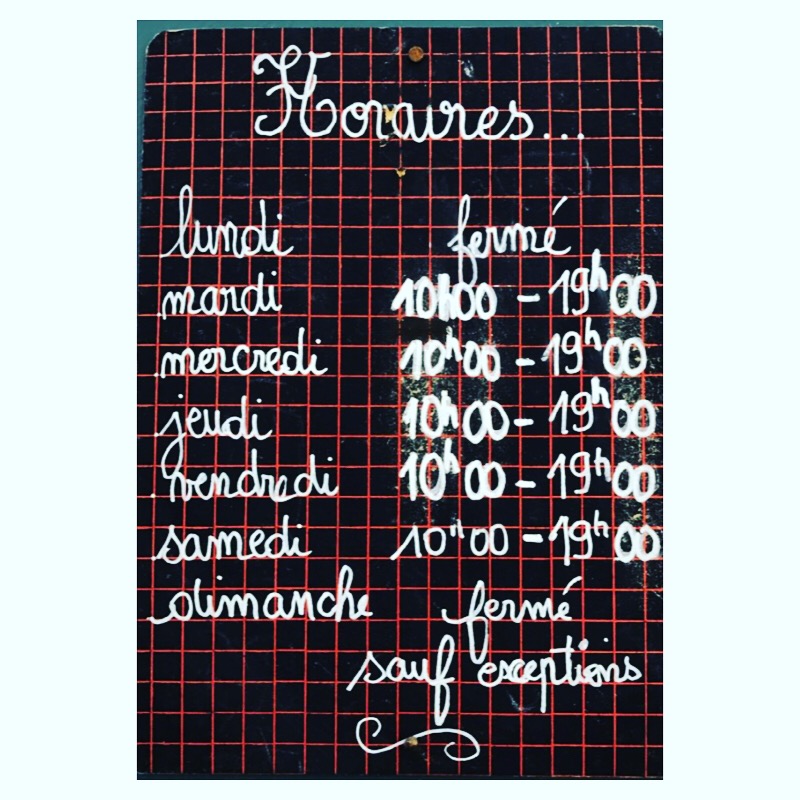 Horaires...
lundi fermé
mardi 10h00 - 19h00
mercredi 10h00 - 19h00
jeudi 10h00 - 19h00
vendredi 10h00 - 19h00
samedi 10h00 - 19h00
dimanche fermé
sauf exceptions